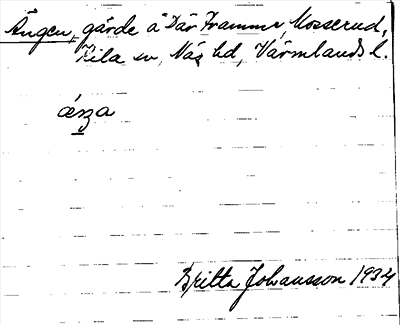 Ängen, gärde å Där Framme, Mosserud,
Kila sn, Näs hd, Värmlands l.
äŋa
Britta Johansson 1934